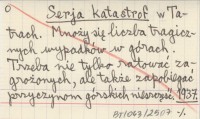 Serja katastrof w Ta-
trach. Mnoży się liczba tragicz-
nych wypadków w górach.
Trzeba nie tylko ratować za-
grożonych, ale także zapobiegać
przyczynom górskich nieszczęść. 1937.